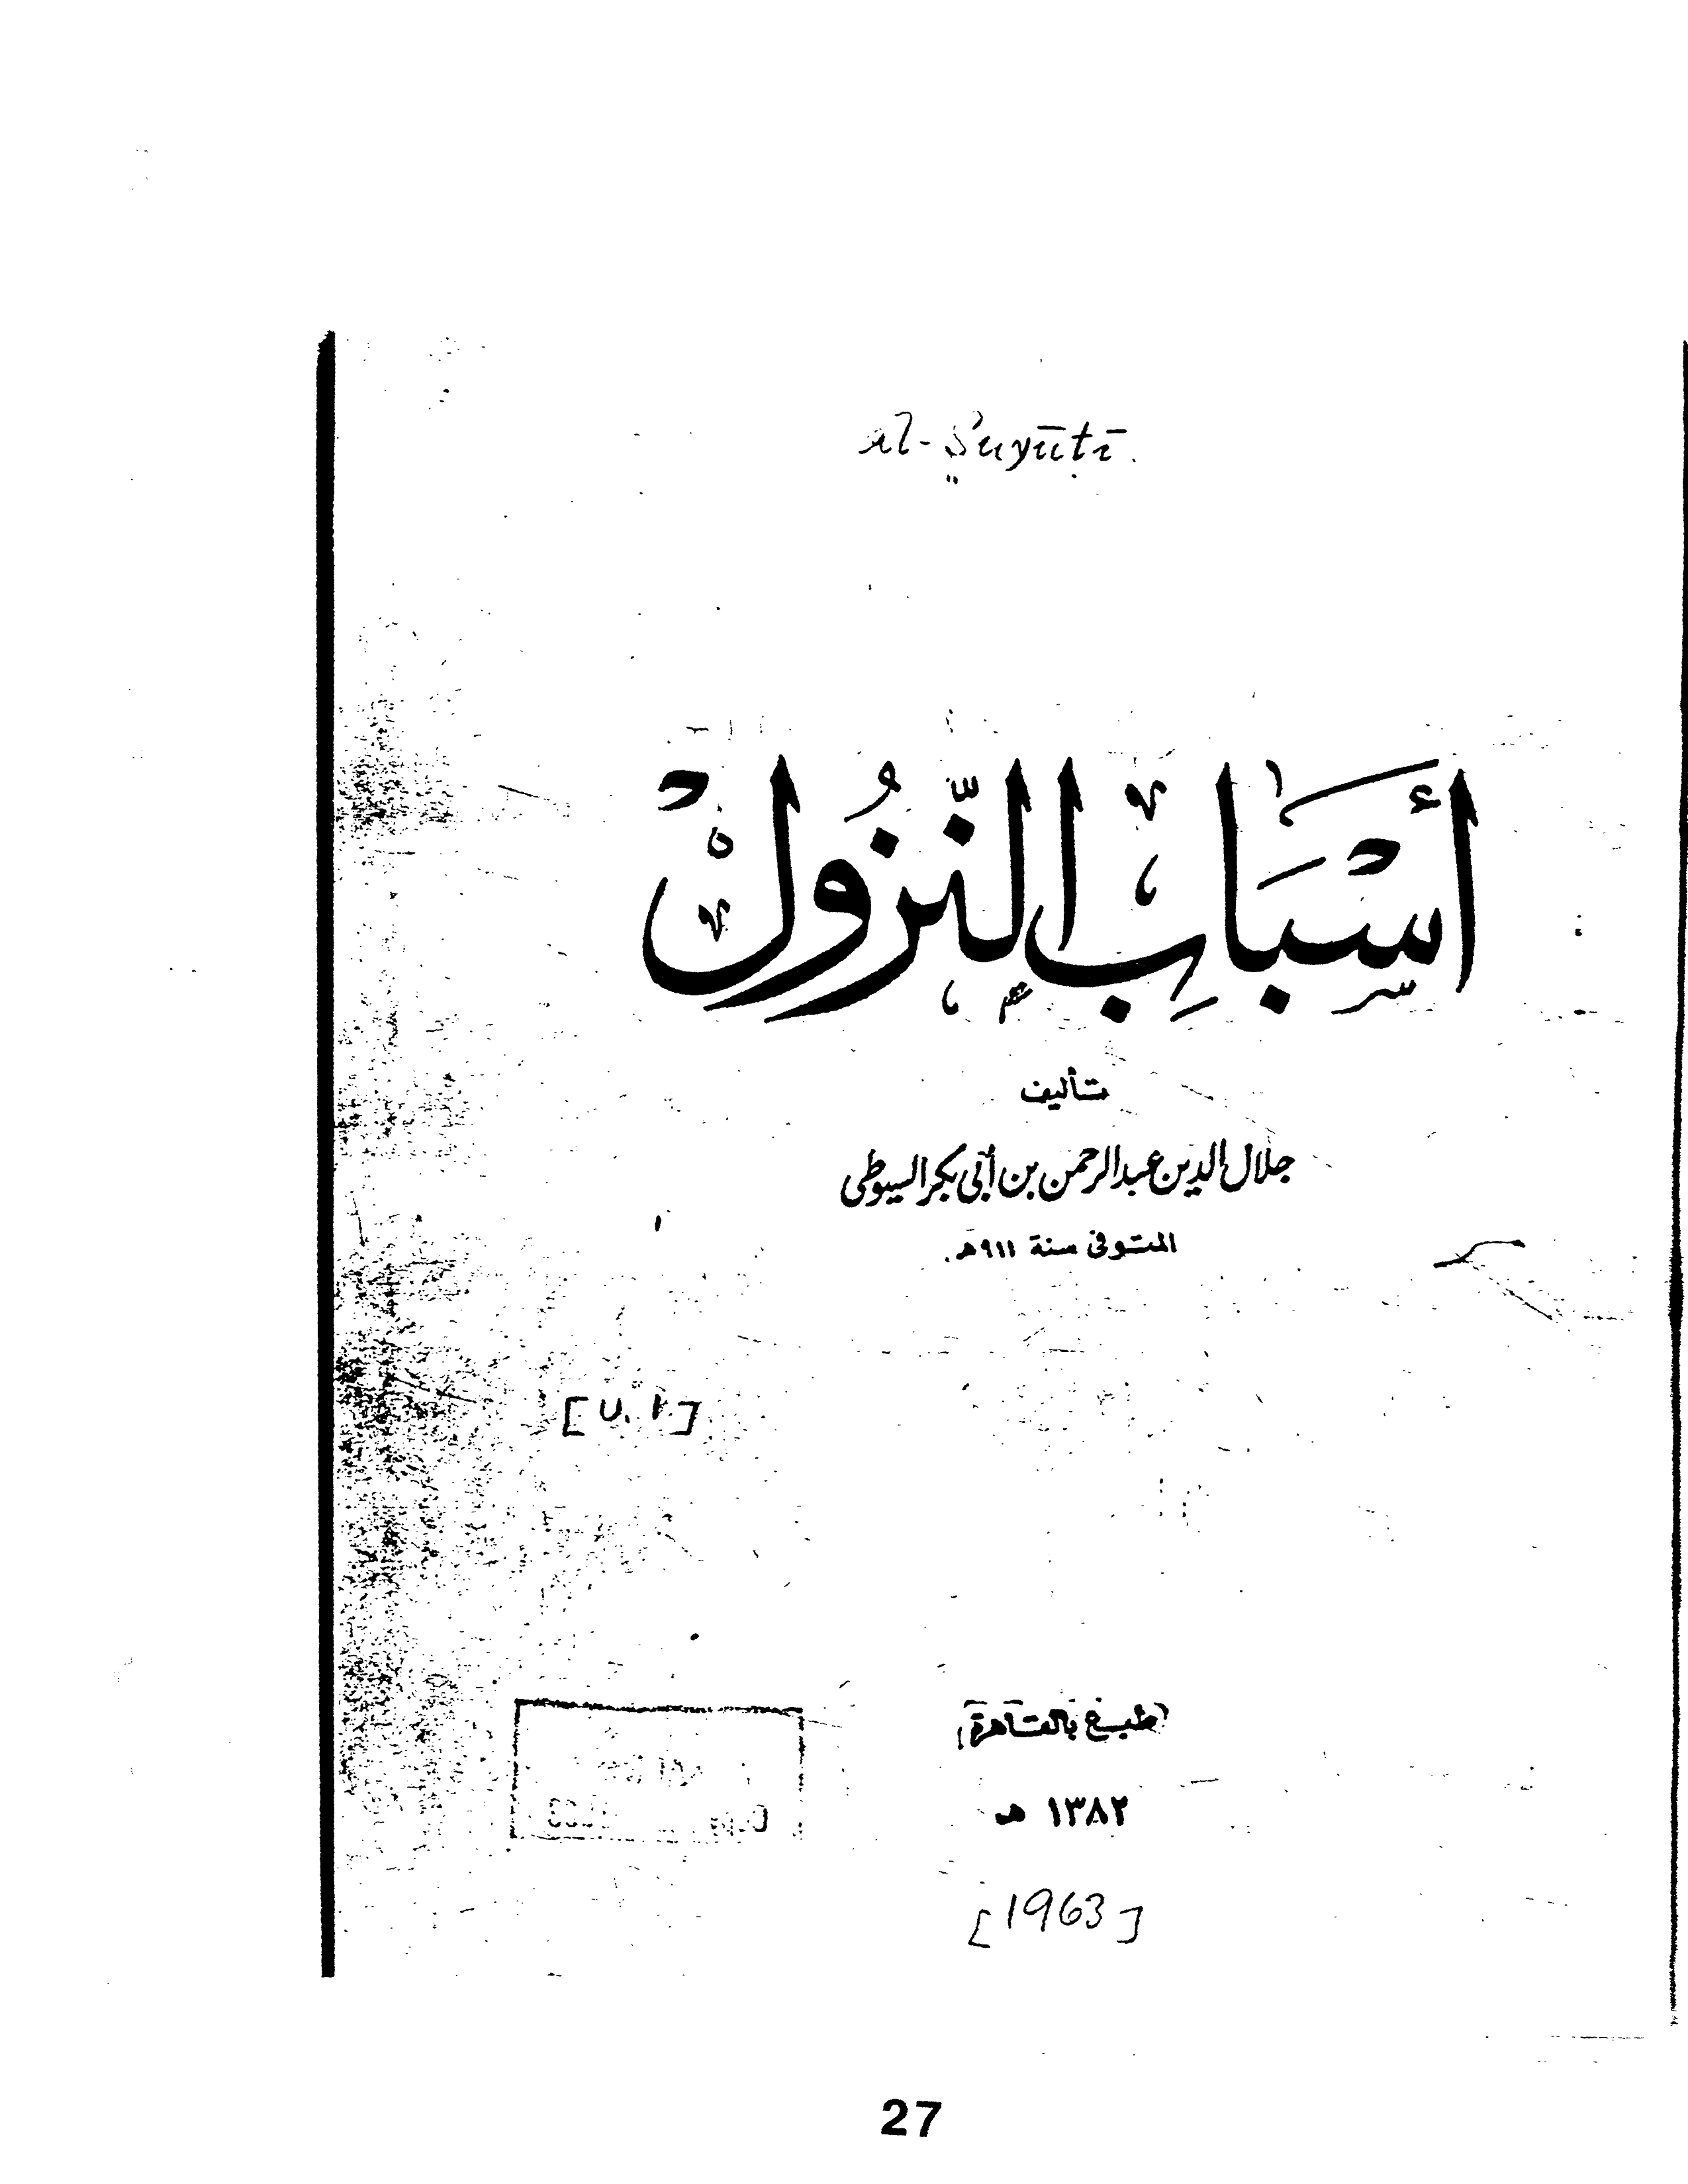 al-Suyūṭī.
أَسْبَابِ النُّزُولْ
تأليف
جلال الدين عبد الرحمن بن أبي بكر السيوطي
المتوفى سنة ٩١١هـ.
[ ٧.١ ]
طبع بالقاهرة
١٣٨٢ هـ
[1963]
27